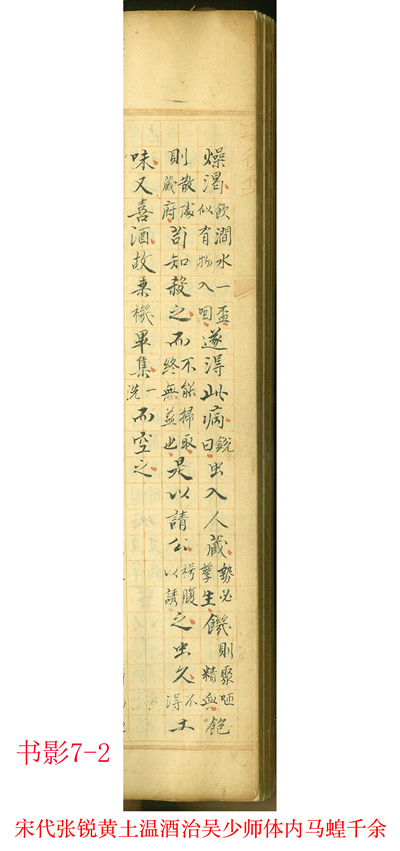 燥渴飲澗水一盃似有物入咽遂得此病銳曰虫入人藏勢必孳生饑則聚咂精血飽
則散處藏府苟知殺之而不能掃取終無益也是以請公枵腹以誘之虫久不得土
味又喜酒故乘機畢集一洗而空之
书影7-2
宋代张锐黄土温酒治吴少师体内马蝗千余